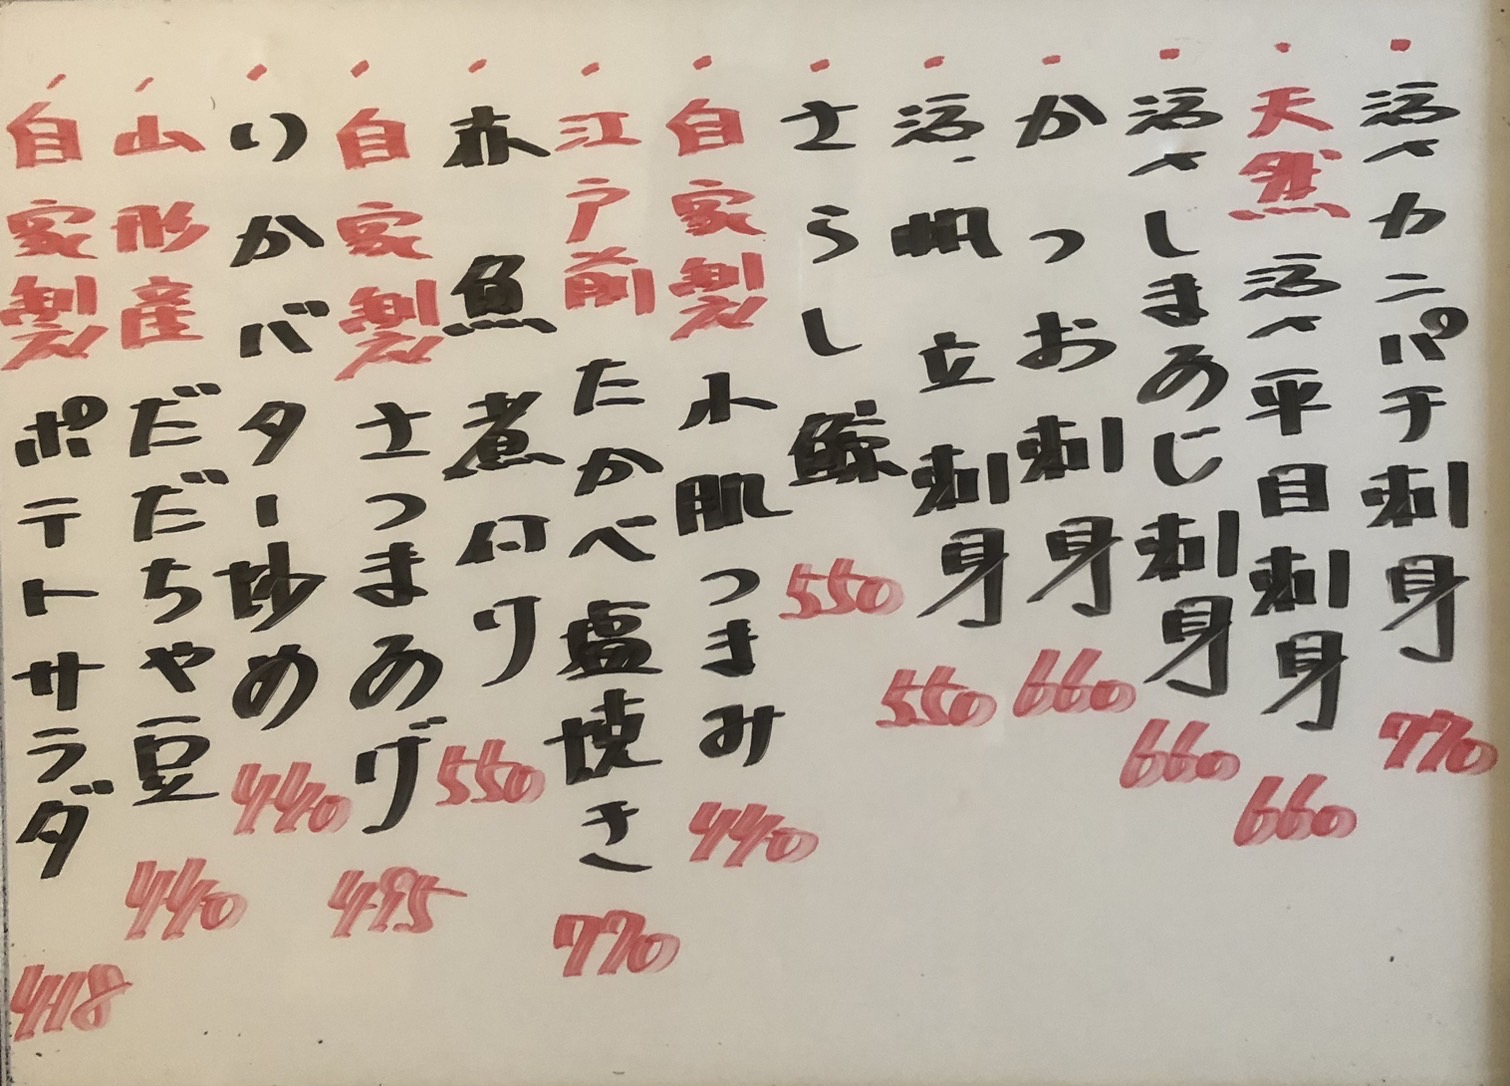 活〆カンパチ刺身 770
天然 活〆平目刺身 660
活〆しまあじ刺身 660
かつお刺身 660
活帆立刺身 550
さらし鯨 550
自家製 小肌つまみ 440
江戸前 たかべ塩焼き 770
赤魚煮付け 550
自家製 さつまあげ 495
いかバター炒め 440
山形産 だだちゃ豆 440
自家製 ポテトサラダ 418